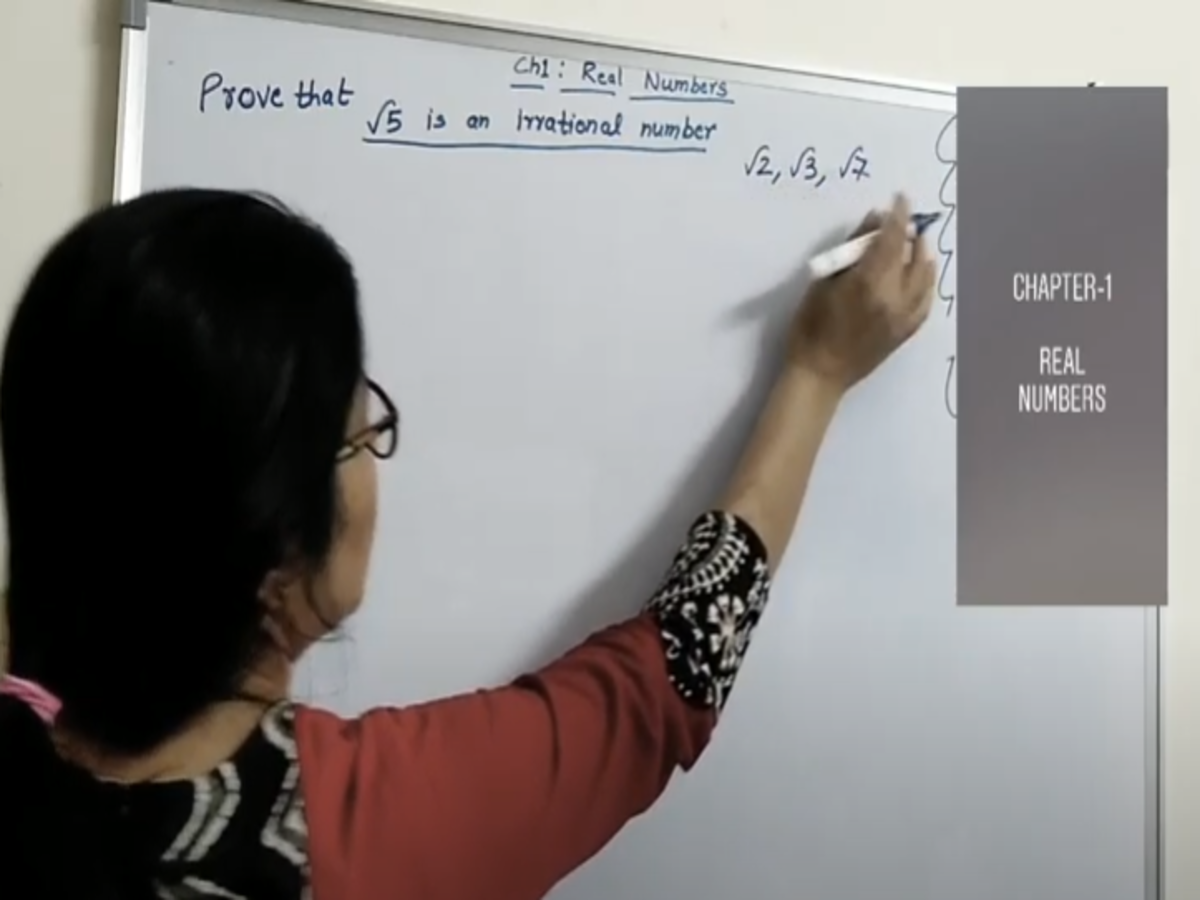 Ch1: Real Numbers
Prove that √5 is an Irrational number
√2, √3, √7
CHAPTER-1
REAL
NUMBERS